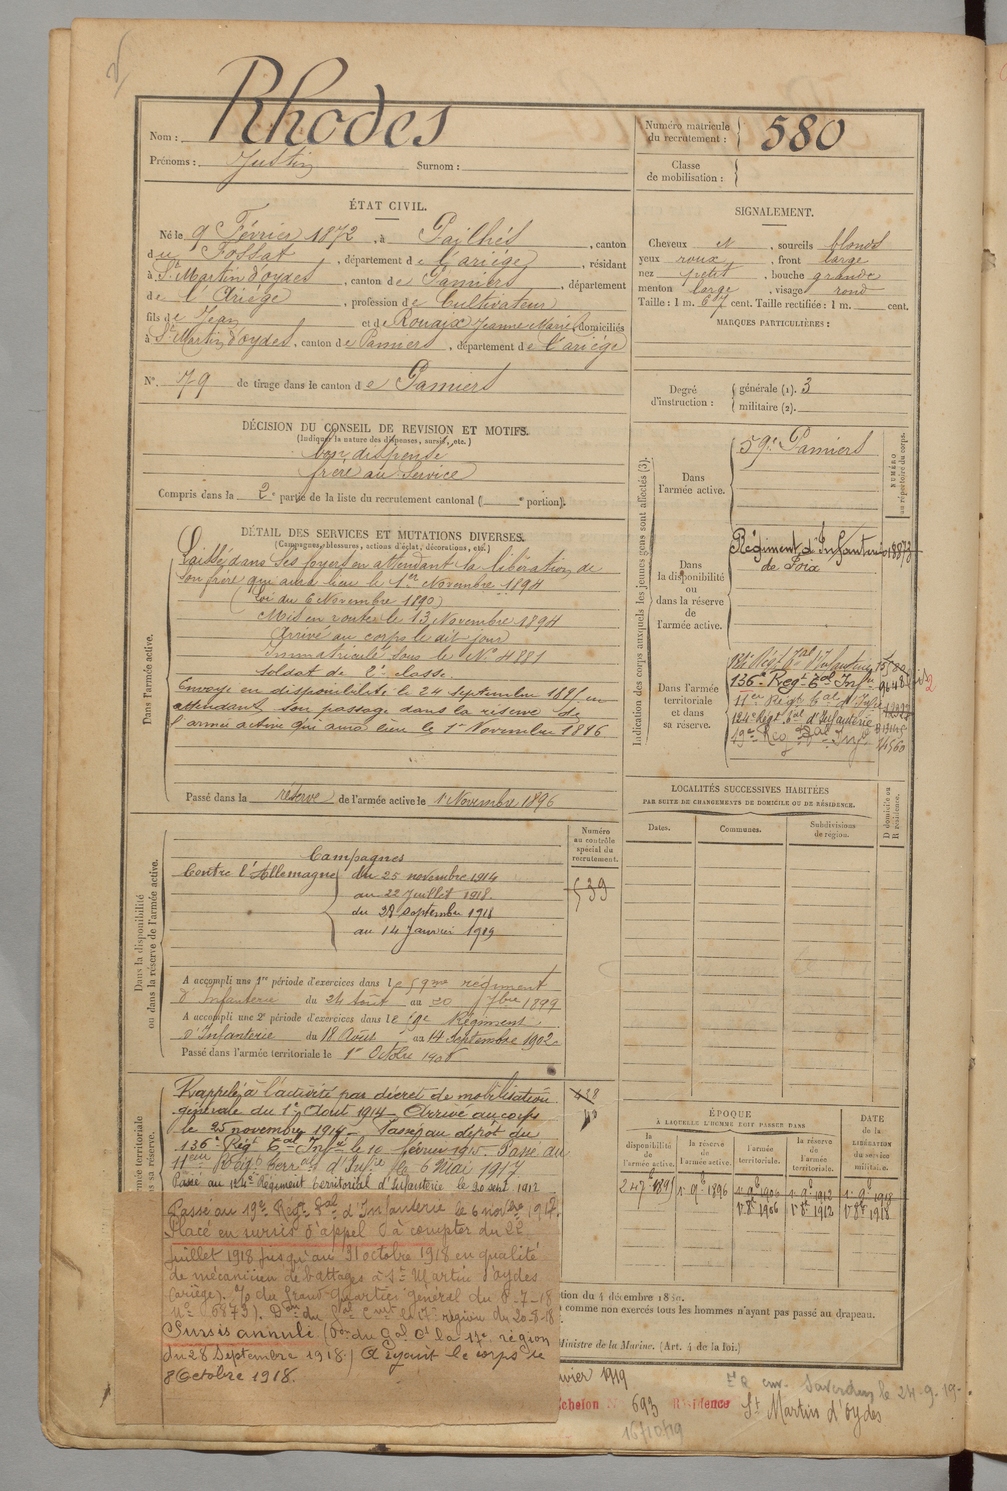 Nom : Rhodes
Prénoms : Justin Surnom :
Numéro matricule du recrutement : 580
Classe de mobilisation :
ÉTAT CIVIL.
Né le 9 Février 1872, à Pailhés, canton
du Fossat, département de l'ariége, résidant
à St Martin d'oydes, canton de Pamiers, département
de l'Ariége, profession de Cultivateur
fils de Jean et de Rouaix Jeanne Marie, domiciliés
à St Martin d'oydes, canton de Pamiers, département de l'ariége
N° 79 de tirage dans le canton de Pamiers
SIGNALEMENT.
Cheveux N, sourcils blonds
yeux roux, front large
nez petit, bouche grande
menton large, visage rond
Taille : 1 m. 67 cent. Taille rectifiée : 1 m. cent.
MARQUES PARTICULIÈRES :
Degré d'instruction : générale (1). 3
militaire (2).
DÉCISION DU CONSEIL DE REVISION ET MOTIFS.
(Indiquer la nature des dispenses, sursis, etc.)
bon dispensé
frère au Service
Compris dans la 2e partie de la liste du recrutement cantonal ( e portion).
DÉTAIL DES SERVICES ET MUTATIONS DIVERSES.
(Campagnes, blessures, actions d'éclat, décorations, etc.)
Dans l'armée active.
Laissé dans ses foyers en attendant la libération de
son frère qui aura lieu le 1er Novembre 1894
(Loi du 6 Novembre 1890)
Mis en route le 13 Novembre 1894
Arrivé au corps le dit jour
Immatriculé sous le N° 4881
soldat de 2e classe
Envoyé en disponibilité le 24 septembre 1895 en
attendant son passage dans la réserve de
l'armée active qui aura lieu le 1er Novembre 1896
Passé dans la réserve de l'armée active le 1 Novembre 1896
Indication des corps auxquels les jeunes gens sont affectés (3).
NUMÉRO au répertoire du corps.
Dans l'armée active.
59e Pamiers
Dans la disponibilité ou dans la réserve de l'armée active.
Régiment d'Infanterie
de Foix
Dans l'armée territoriale et dans sa réserve.
136e Regt Tal Infie
11e Régt Tal d'Infie
124e Régt Tal d'Infanterie
19e Reg Tal Inf
LOCALITÉS SUCCESSIVES HABITÉES
PAR SUITE DE CHANGEMENTS DE DOMICILE OU DE RÉSIDENCE.
Dates. Communes. Subdivisions de région. D domicile ou R résidence.
Dans la disponibilité ou dans la réserve de l'armée active.
Numéro au contrôle spécial du recrutement.
539
Campagnes
Contre l'Allemagne du 25 novembre 1914
au 22 Juillet 1918.
du 28 septembre 1918
au 14 Janvier 1919
A accompli une 1re période d'exercices dans le 59me régiment
d'Infanterie du 24 Août au 20 7bre 1899
A accompli une 2e période d'exercices dans le 59e Régiment
d'Infanterie du 18 Août au 14 Septembre 1902
Passé dans l'armée territoriale le 1er Octobre 1906
Rappelé à l'activité par décret de mobilisation
générale du 1er Aout 1914 - Arrivé au corps
le 25 novembre 1914 - Passé au dépôt du
136e Régt Tal Infie le 10 février 1915. Passé au
11eme Régt Terral d'Infie le 6 Mai 1917
Passé au 124e Régiment territorial d'Infanterie le 20 sept 1917
Passé au 19e Régt Tal d'Infanterie le 6 novbre 1917.
Placé en sursis d'appel à compter du 22
Juillet 1918 jusqu'au 31 octobre 1918 en qualité
de mécanicien de battages à St Martin d'oydes
(ariège). du Grand Quartier général du 8-7-18
No 6873). Don du Gal Cmt la 17e région du 20-8-18
Sursis annulé (Don du Gal Ct la 17e région
du 28 Septembre 1918.) A rejoint le corps le
8 Octobre 1918.
ÉPOQUE
À LAQUELLE L'HOMME DOIT PASSER DANS
la disponibilité de l'armée active.
la réserve de l'armée active.
l'armée territoriale.
la réserve de l'armée territoriale.
DATE de la LIBÉRATION du service militaire.
24 7bre 1895 1 9b 1896 1 9b 1906 1 9b 1912 1 9b 1918
1 8b 1906 1 8b 1912 1 8b 1918
tion du 4 décembre 1890.
comme non exercés tous les hommes n'ayant pas passé au drapeau.
Ministre de la Marine. (Art. 4 de la loi.)
vier 1919
Echelon N° 693 Résidence St Martin d'oydes
Saverdun le 24-9-19
16/10/19